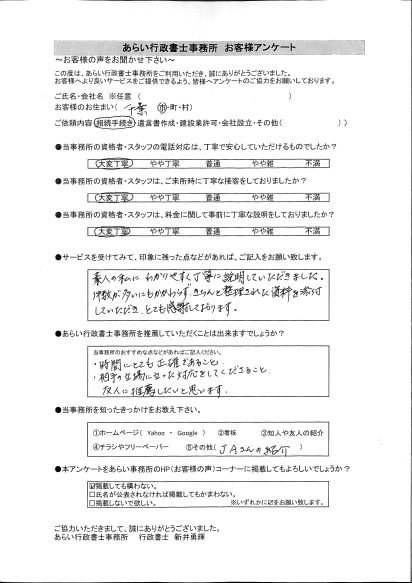 あらい行政書士事務所 お客様アンケート
～お客様の声をお聞かせ下さい～
この度は、あらい行政書士事務所をご利用いただき、誠にありがとうございました。
お客様へより良いサービスをご提供できるよう、皆様へアンケートのご協力をお願いしております。
ご氏名・会社名 ※任意 ( )
お客様のお住まい( 千葉 市・町・村)
ご依頼内容 相続手続き 遺言書作成・建設業許可・会社設立・その他( ) )
●当事務所の資格者・スタッフの電話対応は、丁寧で安心していただけるものでしたか?
大変丁寧 やや丁寧 普通 やや雑 不満
●当事務所の資格者・スタッフは、ご来所時に丁寧な接客をしておりましたか?
大変丁寧 やや丁寧 普通 やや雑 不満
●当事務所の資格者・スタッフは、料金に関して事前に丁寧な説明をしておりましたか?
大変丁寧 やや丁寧 普通 やや雑 不満
●サービスを受けてみて、印象に残った点などがあれば、ご記入をお願い致します。
素人の私に、わかりやすく丁寧に説明していただきました。
件数が多いにもかかわらず、きちんと整理された資料を添付
していただき、とても感謝しております。
●あらい行政書士事務所を推薦していただくことは出来ますでしょうか?
当事務所のおすすめな点などがあればご記入ください。
・時間にとても正確であること
・相手の立場に立った対応をしてくださること
友人に推薦したいと思います。
●当事務所を知ったきっかけをお教え下さい。
①ホームページ( Yahoo ・ Google ) ②看板 ③知人や友人の紹介
④チラシやフリーペーパー ⑤その他( JAさんの紹介 )
●本アンケートをあらい事務所のHP(お客様の声)コーナーに掲載してもよろしいでしょうか?
☑掲載しても構わない。
□氏名が公表されなければ掲載してもかまわない。
□掲載しないで欲しい。 ※いずれかに☑をお願い致します。
ご協力いただきまして、誠にありがとうございました。
あらい行政書士事務所 行政書士 新井勇輝